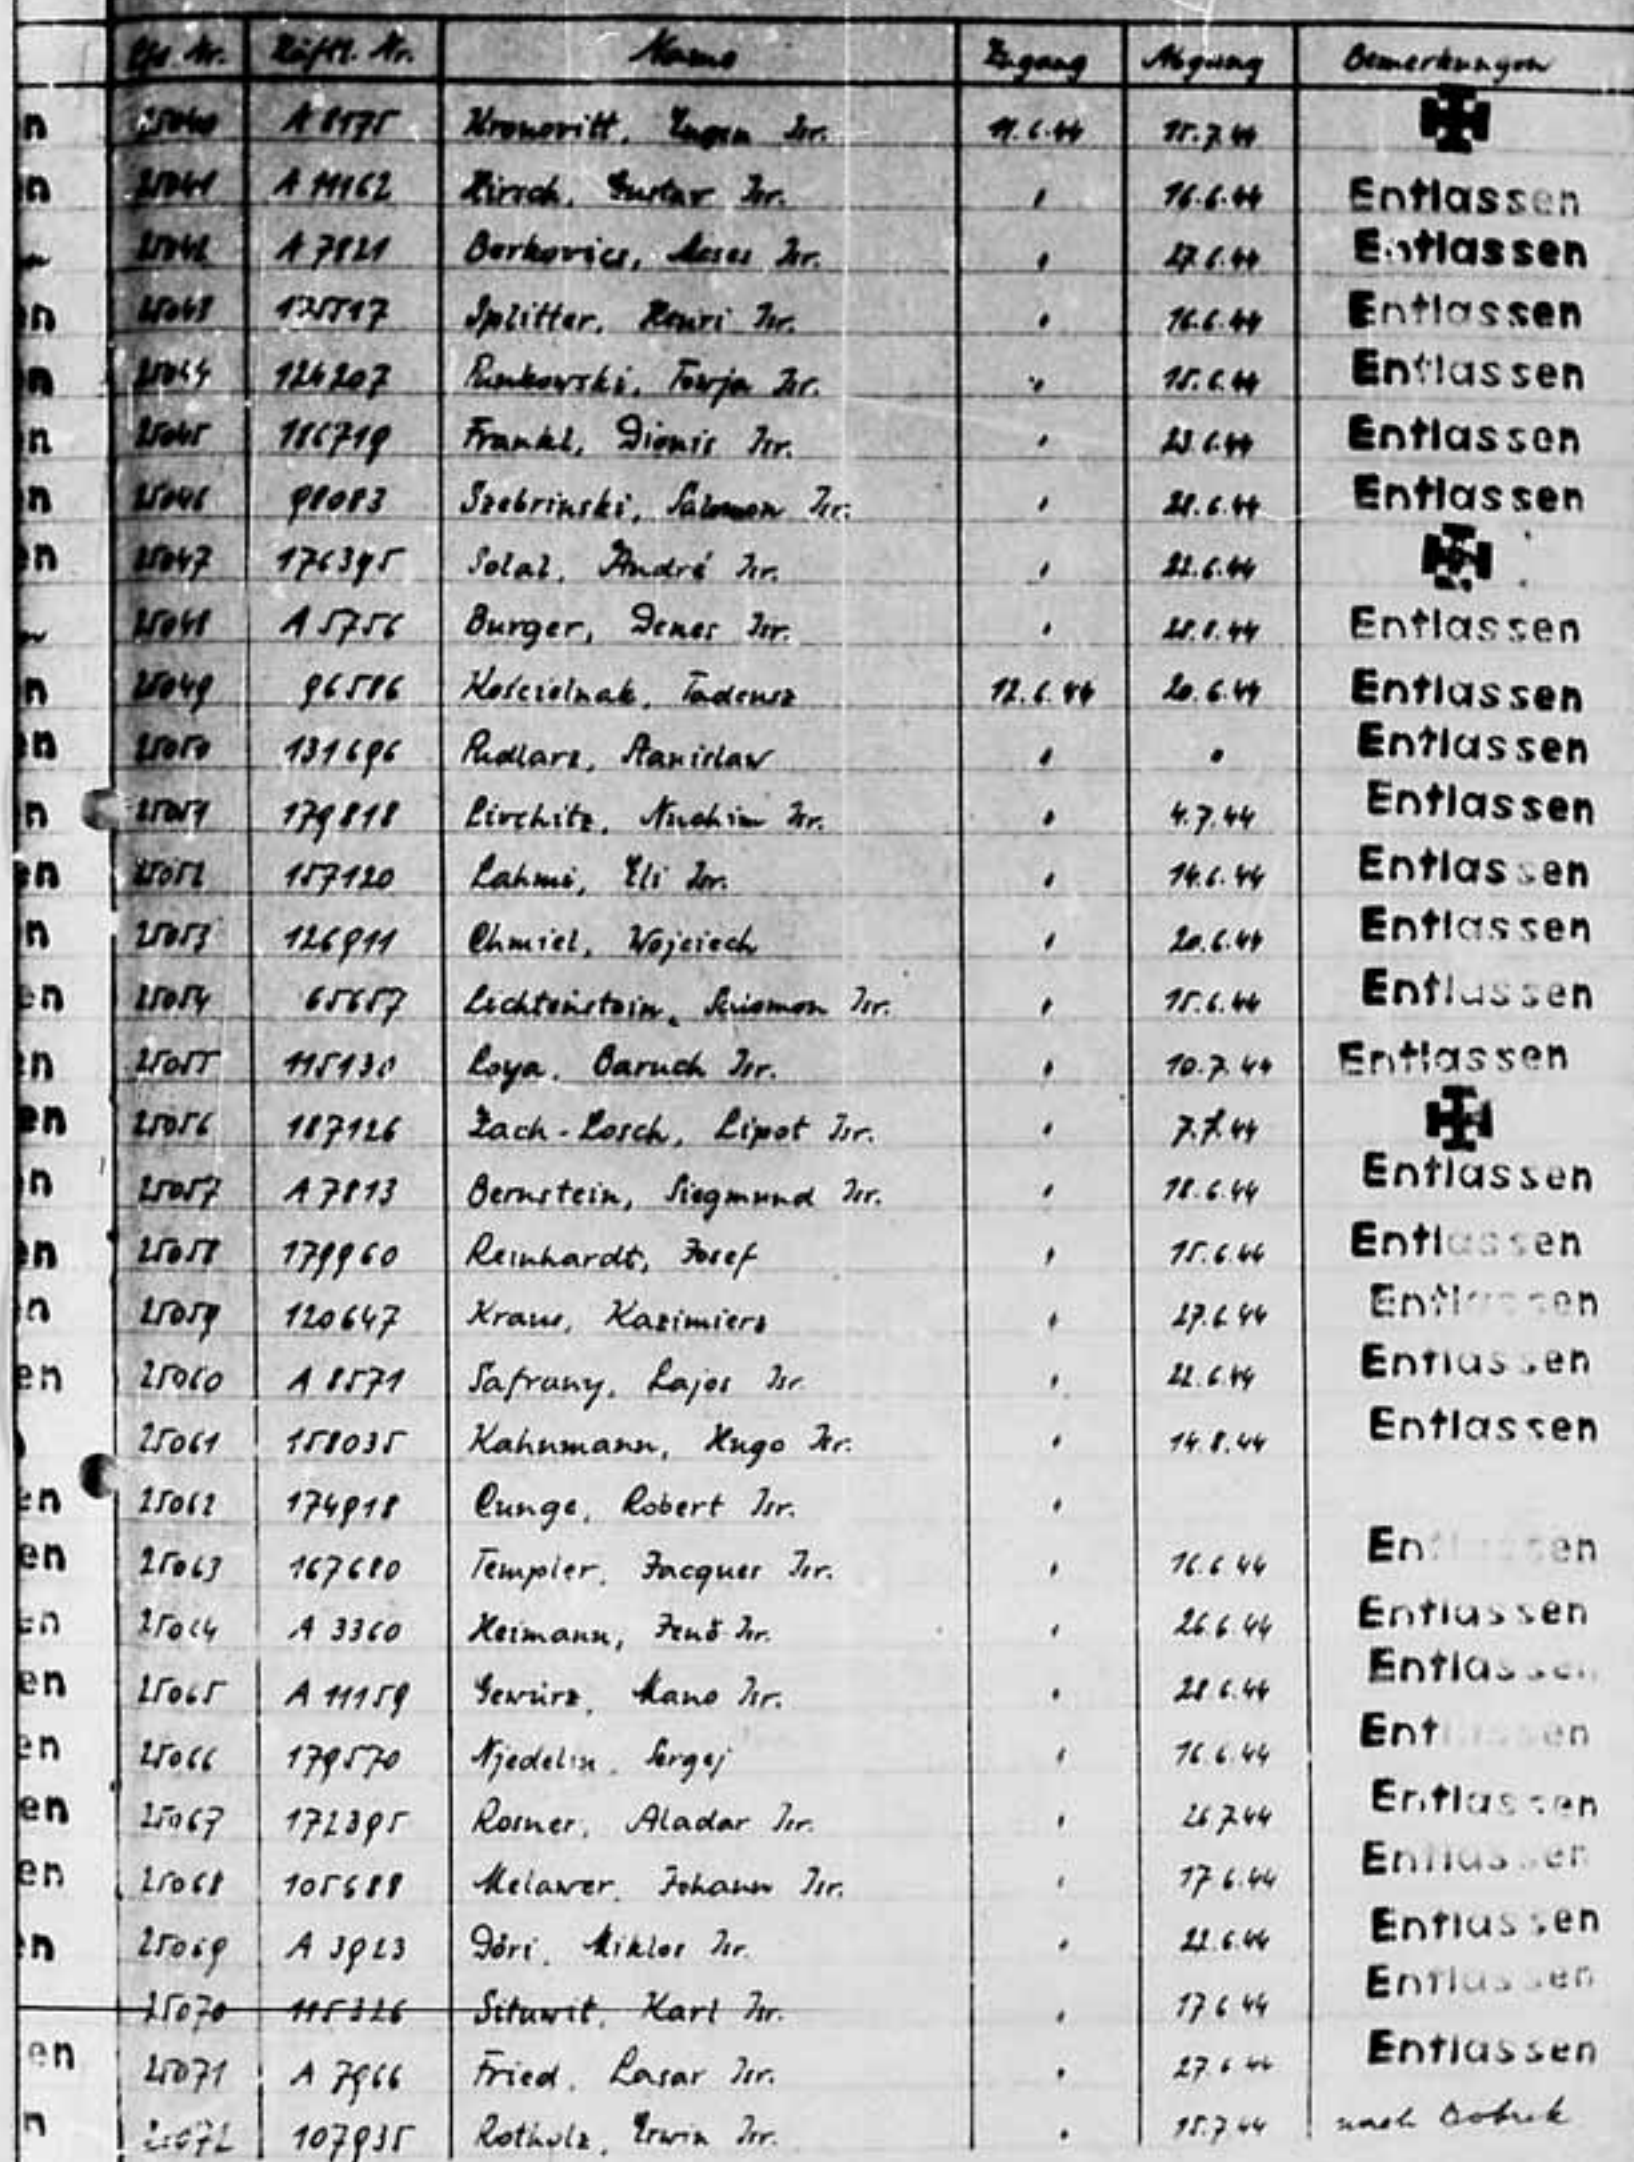 Lfd. Nr. Häftl. Nr. Name Zugang Abgang Bemerkungen
25040 A 8575 Kronovitt, Eugen Isr. 11.6.44 15.7.44
25041 A 11162 Hirsch, Gustav Isr. " 16.6.44 Entlassen
25042 A 7821 Berkovics, Moses Isr. " 27.6.44 Entlassen
25043 Splitter, Henri Isr. " 16.6.44 Entlassen
25044 124207 Isr. " 15.6.44 Entlassen
25045 186719 Frankl, Dionis Isr. " 23.6.44 Entlassen
25046 98083 Szebrinski, Salomon Isr. " 28.6.44 Entlassen
25047 176395 Solal, André Isr. " 22.6.44
25048 A 5756 Burger, Denes Isr. " 28.8.44 Entlassen
25049 96586 Kościelnak, Tadeusz 12.6.44 20.6.44 Entlassen
25050 131696 Stanislaw " " Entlassen
25051 179818 Livchitz, Nuchim Isr. " 4.7.44 Entlassen
25052 157120 Lahmi, Eli Isr. " 14.6.44 Entlassen
25053 126911 Chmiel, Wojciech " 20.6.44 Entlassen
25054 65657 Lichtenstein, Isr. " 15.6.44 Entlassen
25055 115130 Loya, Baruch Isr. " 10.7.44 Entlassen
25056 187126 Zach-Losch, Lipot Isr. " 7.7.44
25057 A 7813 Bernstein, Siegmund Isr. " 18.6.44 Entlassen
25058 179960 Reinhardt, Josef " 15.6.44 Entlassen
25059 120647 Kraus, Kazimierz " 27.6.44 Entlassen
25060 A 8571 Safrany, Lajos Isr. " 22.6.44 Entlassen
25061 158035 Kahnmann, Hugo Isr. " 14.8.44 Entlassen
25062 174918 Cunge, Robert Isr. "
25063 167680 Templer, Jacques Isr. " 16.6.44 Entlassen
25064 A 3360 Heimann, Jenö Isr. " 26.6.44 Entlassen
25065 A 11159 Gewürz, Mano Isr. " 28.6.44 Entlassen
25066 179570 Njedelin, Sergej " 16.6.44 Entlassen
25067 172395 Rosner, Aladar Isr. " 26.7.44 Entlassen
25068 105688 Melawer, Johann Isr. " 17.6.44 Entlassen
25069 A 3923 Döri, Miklos Isr. " 22.6.44 Entlassen
25070 115326 Situwit, Karl Isr. " 17.6.44 Entlassen
25071 A 7966 Fried, Lasar Isr. " 27.6.44 Entlassen
25072 107935 Rotholz, Erwin Isr. " 15.7.44 nach Bobrek